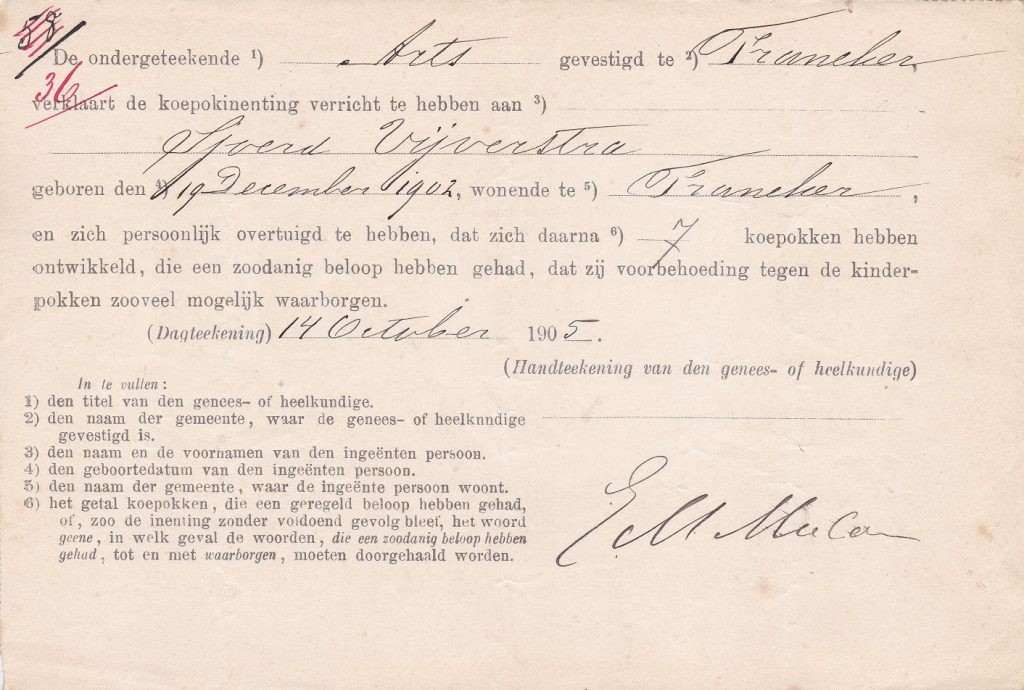 58/
36
De ondergeteekende ¹) Arts gevestigd te ²) Franeker,
verklaart de koepokinenting verricht te hebben aan ³)
Sjoerd Vijverstra
geboren den ⁴) 19 December 1902, wonende te ⁵) Franeker,
en zich persoonlijk overtuigd te hebben, dat zich daarna ⁶) 7 koepokken hebben
ontwikkeld, die een zoodanig beloop hebben gehad, dat zij voorbehoeding tegen de kinder-
pokken zooveel mogelijk waarborgen.
(Dagteekening) 14 October 1905.
(Handteekening van den genees- of heelkundige)
In te vullen:
1) den titel van den genees- of heelkundige.
2) den naam der gemeente, waar de genees- of heelknndige
gevestigd is.
3) den naam en de voornamen van den ingeënten persoon.
4) den geboortedatum van den ingeënten persoon.
5) den naam der gemeente, waar de ingeënte persoon woont.
6) het getal koepokken, die een geregeld beloop hebben gehad,
of, zoo de inenting zonder voldoend gevolg bleef, het woord
geene, in welk geval de woorden, die een zoodanig beloop hebben
gehad, tot en met waarborgen, moeten doorgehaald worden.